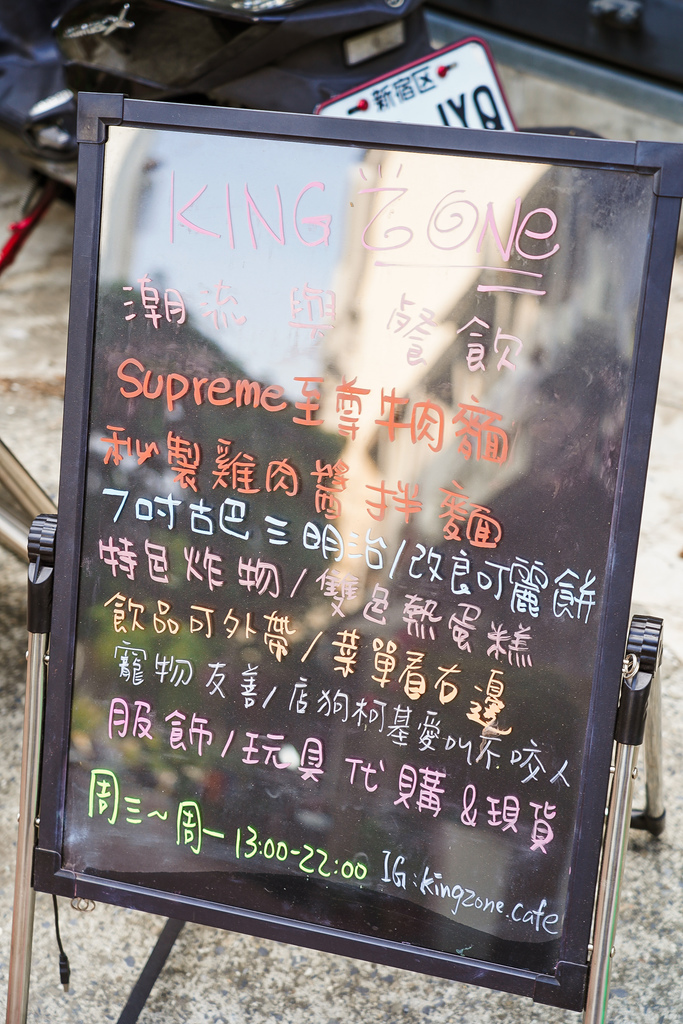 新宿区
JYQ
KING ZONE
潮流 與 餐飲
Supreme至尊牛肉麵
秘製雞肉醬拌麵
7吋古巴三明治/改良可麗餅
特色炸物/雙色熱蛋糕
飲品可外帶/菜單看右邊
寵物友善/店狗柯基愛叫不咬人
服飾/玩具代購&現貨
周三~周一 13:00-22:00 IG:kingzone.cafe